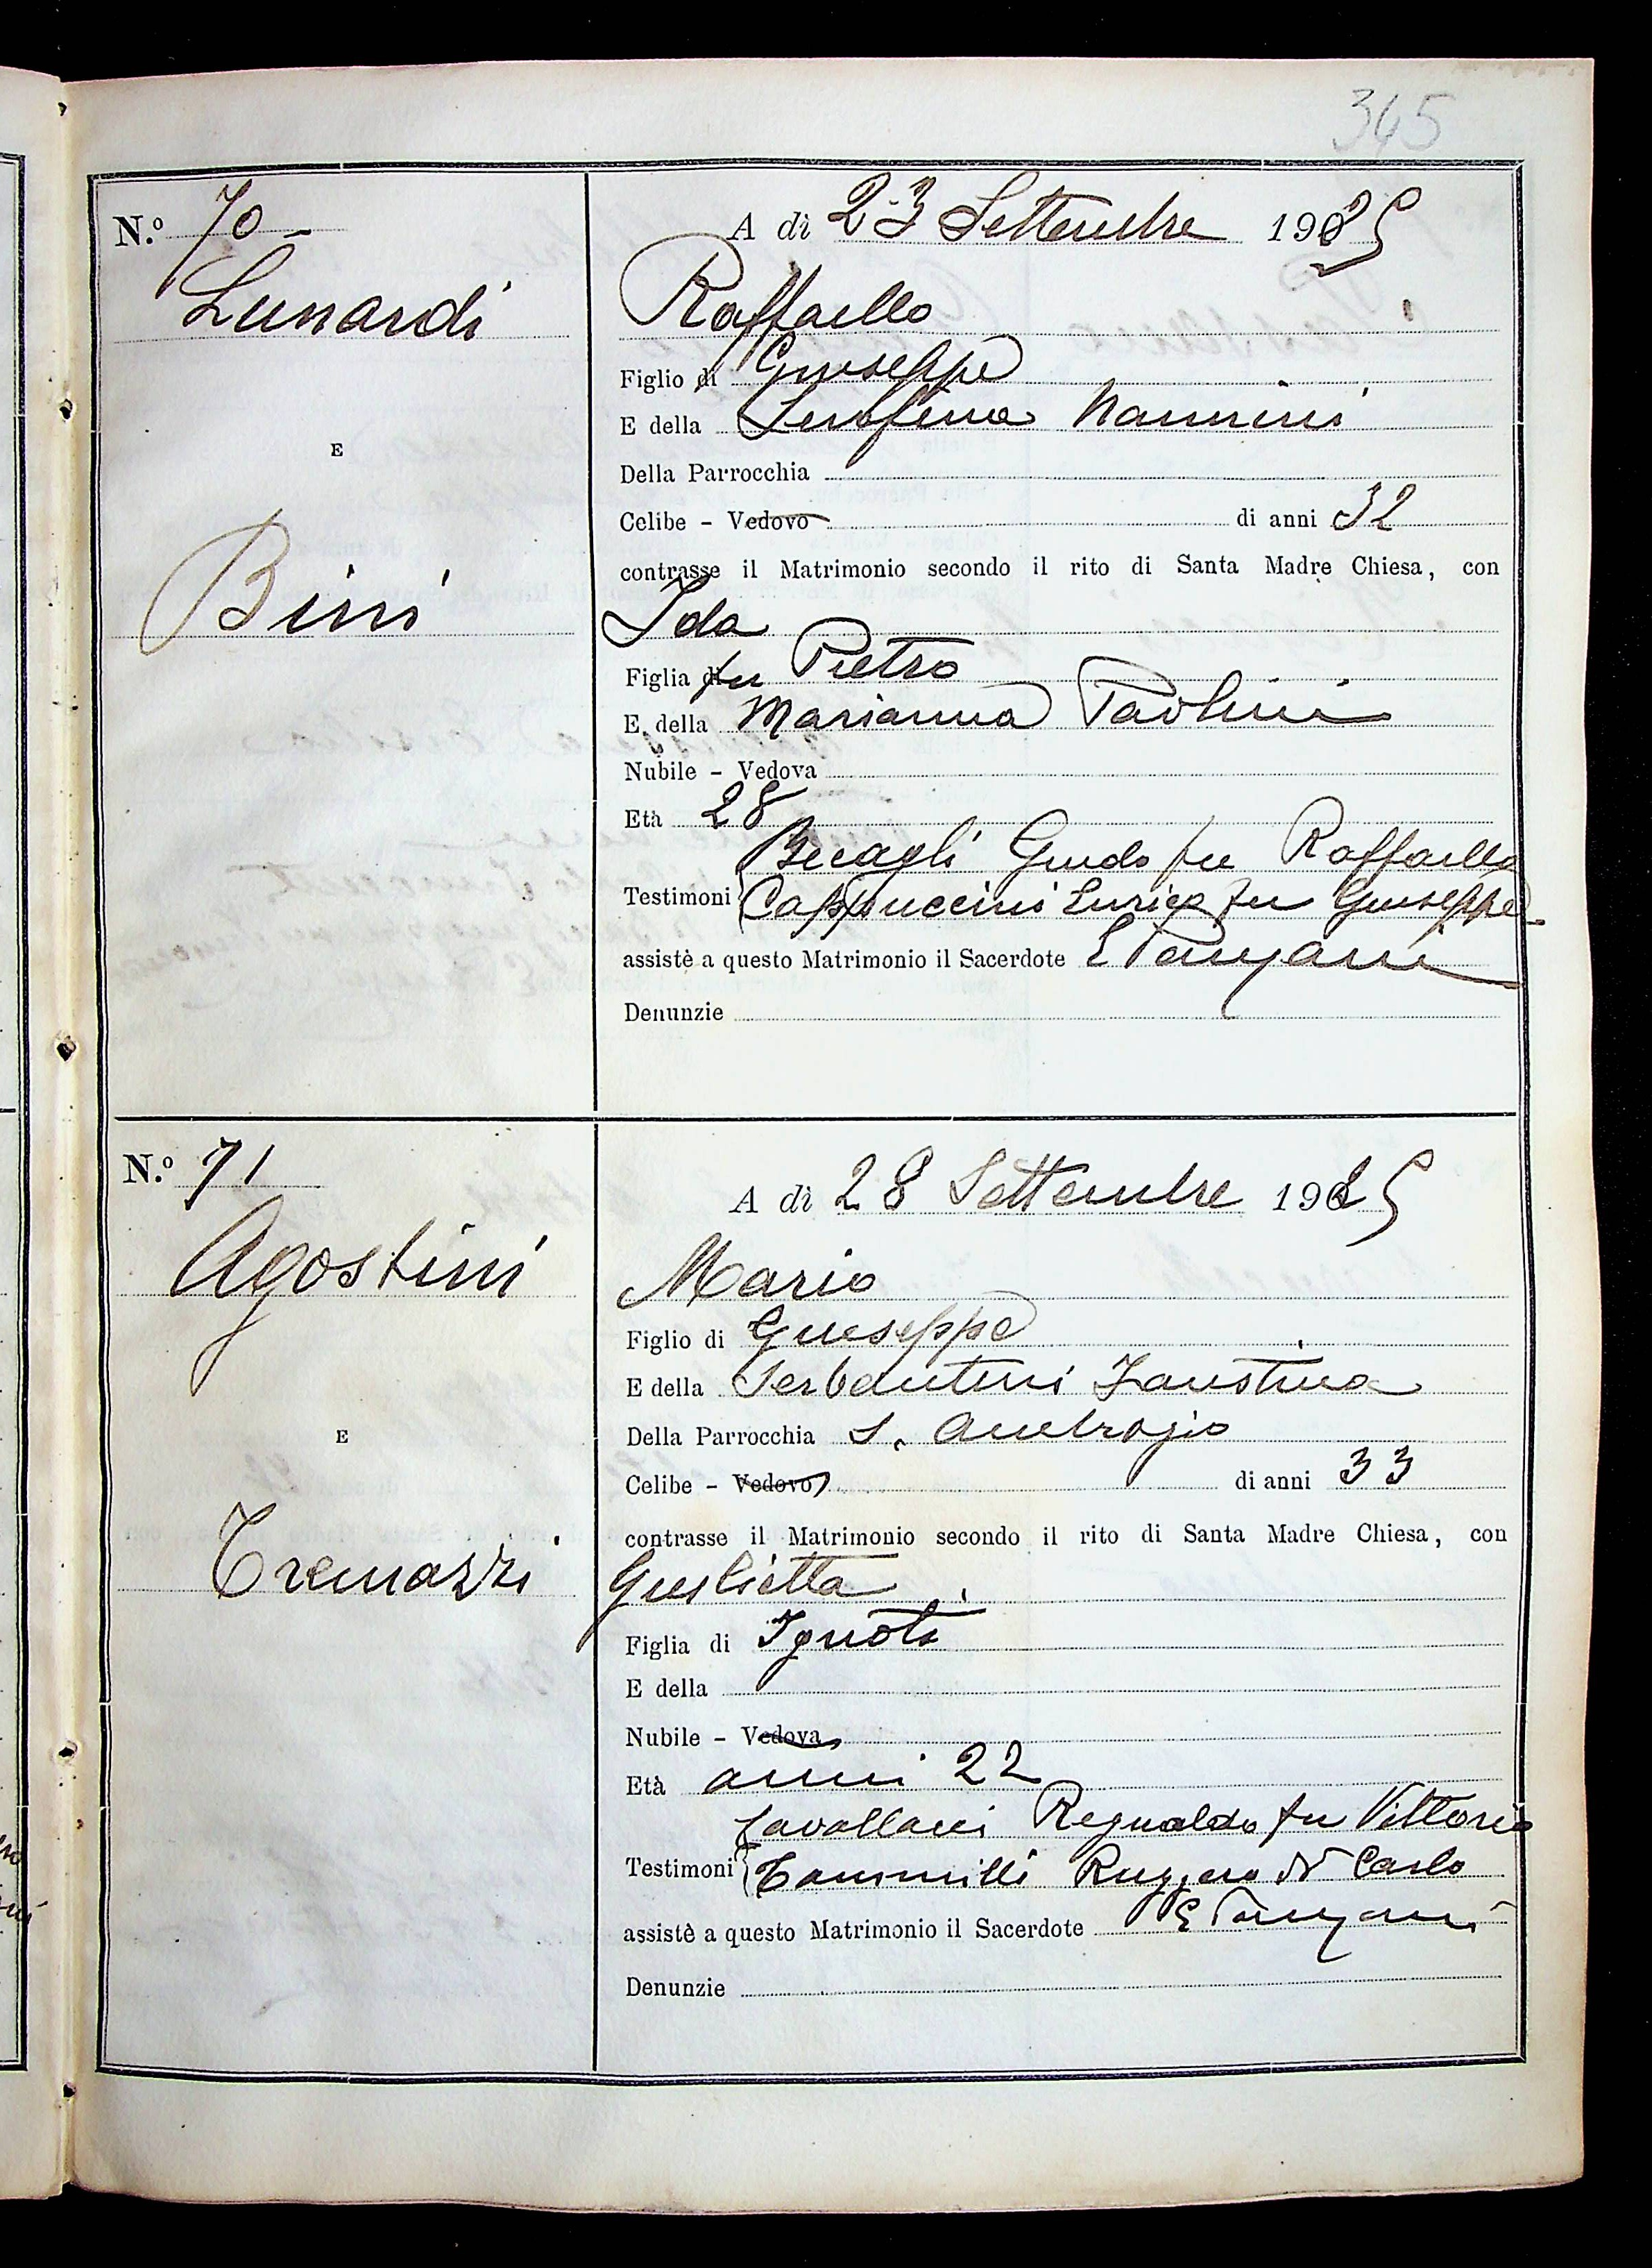 345
N.º 70
A dì 23 Settembre 1925
Lunardi
Raffaello
Figlio di Giuseppe
E della Serafina Nannini
E
Della Parrocchia
Celibe - Vedovo di anni 32
contrasse il Matrimonio secondo il rito di Santa Madre Chiesa, con
Bini
Ida
Figlia fu Pietro
E della Marianna Paolini
Nubile - Vedova
Età 28
Becagli Guido fu Raffaello
Testimoni Cappuccini Enrico fu Giuseppe
assistè a questo Matrimonio il Sacerdote E
Denunzie
N.º 71
A dì 28 Settembre 1925
Agostini
Mario
Figlio di Giuseppe
E della Serbentini Faustina
Della Parrocchia S. Ambrogio
E
Celibe - Vedovo di anni 33
contrasse il Matrimonio secondo il rito di Santa Madre Chiesa, con
Tremazzi
Giulietta
Figlia di Ignoti
E della
Nubile - Vedova
Età anni 22
Cavallacci fu Vittorio
Testimoni Ruggero di Carlo
assistè a questo Matrimonio il Sacerdote E
Denunzie